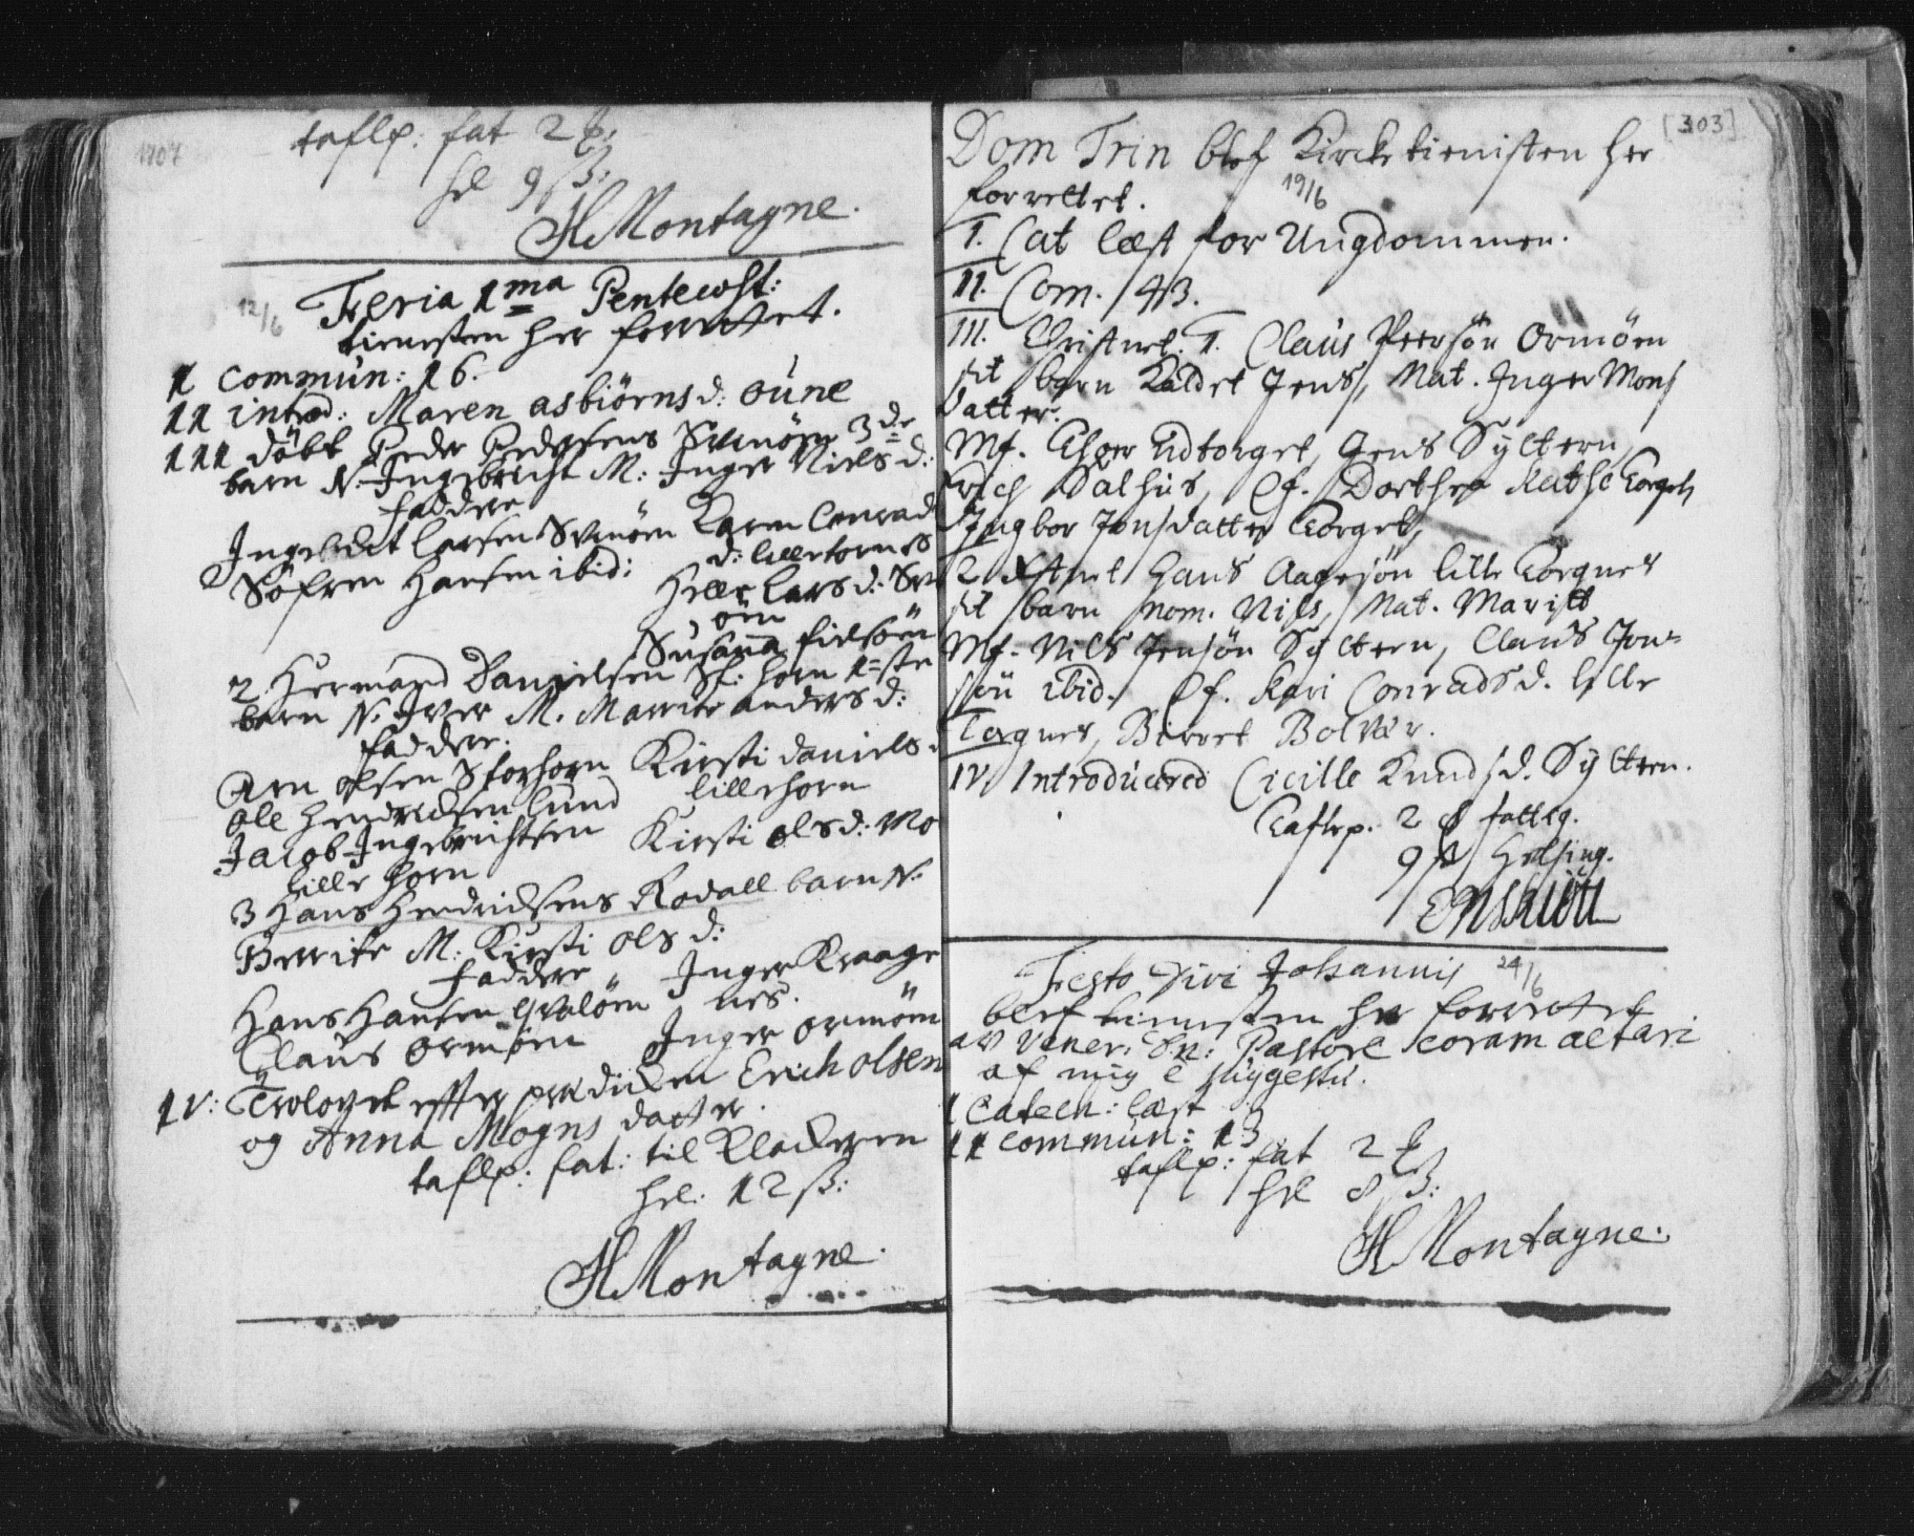 1707
taflp: fat 2
hel 9 ß:
HMontagne.
12/6
Feria 1ma Pentecost:
tienesten her forrettet.
I Commun: 16.
II introd: Maren asbiörnsd: oune
III döbt Peder Pedersens Svinöen 3de
barn N. Ingebricht M: Inger Nielsd:
faddere
Ingebrict larsen Svinöen Karen Conrad
d: lilletornes
Söfren Hansen ibid: Helle Larsd: Svi
öen
Susana fielsöen
2 Hermand Danielsen St: horn 1ste
barn N. Iver M. Marrite andersd:
faddere.
Arn olsen Storhorn Kirsti daniels
Ole Hendricksen lund lillehorn
Jacob Ingebrichtsen Kirsti olsd: Mo
lille horn
3 Hans Hendricksens Rodall barn N.
Berrite M: Kirsti olsd:
faddere
Hans Hansen qvalöen Inger Kraage
nes.
Claus ormöen Inger ormöen
IV: Trolovet effter prædicken Erich olsen
og Anna Mogns datter.
taflp: fat: til Klockeren
hel: 12 ß:
HMontagne.
[303]
Dom Trin blef Kircketienisten her
forrettet. 19/6
I. Cat læst for Ungdommen.
II. Com. 43.
III. Christnet. 1. Claus Peersön Ormöen
sit barn Kaldet Jens, Mat. Inger Mons
datter.
Mf. Jens Sÿltern,
Erich Dalhus, Qf. Dorthe Torget,
Ingbor Jonsdatter Torget,
2 Hans Aagesön lille Torgnes
sit barn nom. Nils, Mat. Maritt
Mf. Nils Jensön Sÿltern, Claus Jon-
sön ibid. Qf. Kari Conradsd. lille
Torgnes, Birret Bolvær.
IV. Introducered Cicille Knudsd. Sÿltern.
Taflep. 2 fattig.
9 ß Helsing.
Festo Divi Johannis 24/6
blef tienesten her forrettet
av Vener: Dn: Pastore coram altari
af mig e suggestu.
I Catech: læst
II Commun: 13
taflp: fat 2
hel 8 ß:
HMontagne.